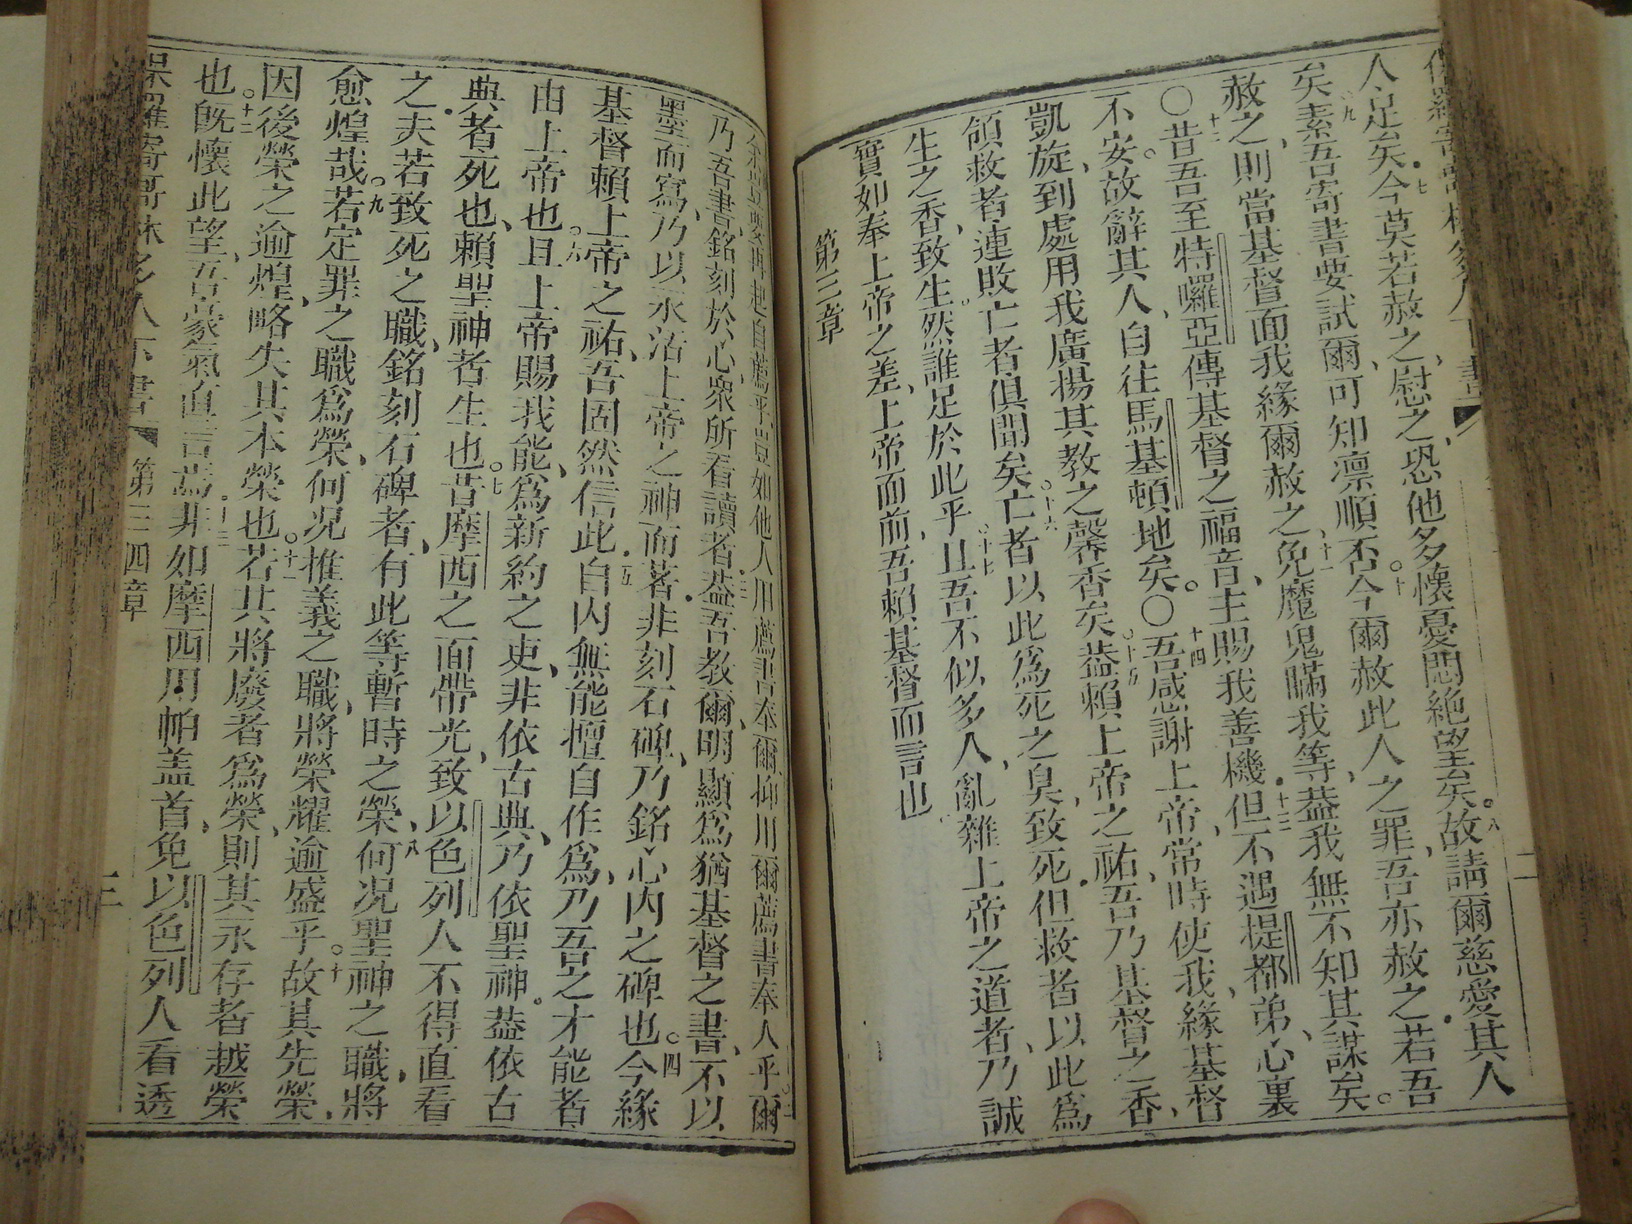 人足矣七今莫若赦之慰之恐他多懷憂悶絕望矣八故請爾慈愛其人
矣九素吾寄書要試爾可知凜順否十今爾赦此人之罪吾亦赦之若吾
赦之則當基督面我緣爾赦之十一免魔鬼瞞我等葢我無不知其謀矣
〇十二昔吾至特囉亞傳基督之福音主賜我善機十三但不遇提都弟心裏
不安故辭其人自往馬基頓地矣〇十四吾感謝上帝常時使我緣基督
凱旋到處用我廣揚其教之馨香矣十五葢賴上帝之祐吾乃基督之香
領救者連敗亡者俱聞矣十六亡者以此為死之臭致死但救者以此為
生之香致生然誰足於此乎十七且吾不似多人亂雜上帝之道者乃誠
實如奉上帝之差上帝面前吾賴基督而言也
第三章
再起自薦乎豈如他人用薦書奉爾抑用爾薦書奉人乎二爾
乃吾書銘刻於心衆所看讀者三葢吾教爾明顯為猶基督之書不以
墨而寫乃以永活上帝之神而著非刻石碑乃銘心內之碑也四今緣
基督賴上帝之祐吾固然信此五自內無能擅自作為乃吾之才能者
由上帝也六且上帝賜我能為新約之吏非依古典乃依聖神葢依古
典者死也賴聖神者生也七昔摩西之面帶光致以色列人不得直看
之夫若致死之職銘刻石碑者有此等暫時之榮八何况聖神之職將
愈煌哉九若定罪之職為榮何况推義之職將榮耀逾盛乎十故其先榮
因後榮之逾煌略失其本榮也十一若其將廢者為榮則其永存者越榮
也十二旣懷此望吾豪氣直言焉十三非如摩西用帕盖首免以色列人看透
保羅寄哥林多人下書 第三四章 三
二